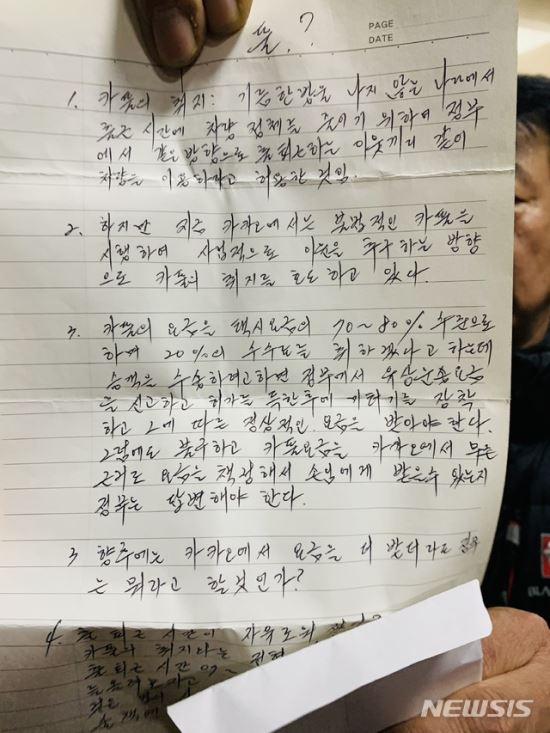 PAGE
DATE
물. ?
1. 카풀의 취지: 기름한방울 나지 않은 나라에서
출근 시간에 차량 정체를 줄이기 위하여 정부
에서 같은 방향으로 출퇴근하는 이웃끼리 같이
차량을 이용하라고 허용한 것임.
2. 하지만 지금 카카오에서는 불법적인 카풀을
시행하여 사업적으로 이윤을 추구하는 방향
으로 카풀의 취지를 호도하고 있다.
3. 카풀의 요금을 택시요금의 70~80% 수준으로
하며 20%의 수수료를 취하겠다고 하는데
승객을 수송하려고하면 정부에서 유상운송요금
을 신고하고 허가를 득한후에 미터기를 장착
하고 그에 따른 정상적인 요금을 받아야 한다.
그럼에도 불구하고 카풀요금을 카카오에서 무슨
근거로 요금을 책정해서 손님에게 받을수 있는지
정부는 답변해야 한다.
3 향후에는 카카오에서 요금을 더 받더라도 정부
는 뭐라고 할것인가?
4. 출퇴근 시간이 자유로워
카풀의 취지라는
출퇴근 시간
NEWSIS